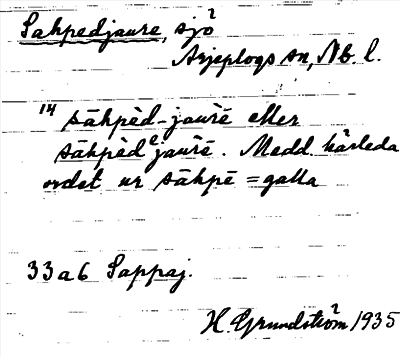 Sahpedjaure, sjö
Arjeplogs sn, Nb. l.
14 sāhpèd-jaurē eller
sāhpèdᵉjaurē. Medd. härleda
ordet ur sāhpē = galla
33a6 Sappaj.
H Grundström 1935